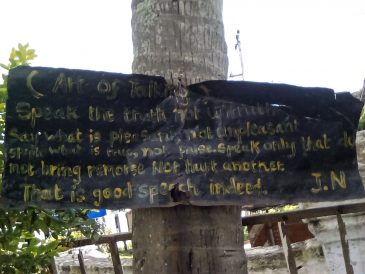 ( Art of Talking
Speak the truth not
Say what is pleasant, not unpleasant
speak what is true, not false. Speak only that do
not bring remorse Not hurt another.
That is good speech indeed. J.N